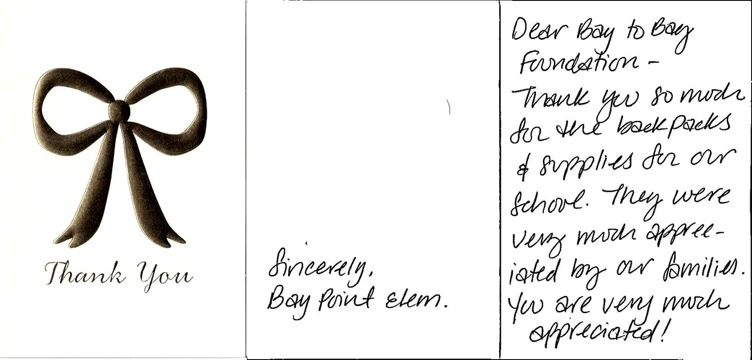 Thank You
Sincerely,
Bay Point Elem.
Dear Bay to Bay
Foundation -
Thank you so much
for the backpacks
& supplies for our
school. They were
very much appree-
iated by our families.
You are very much
appreciated!